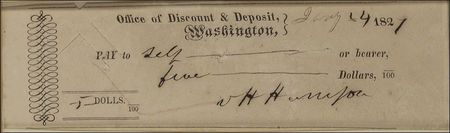 Office of Discount & Deposit,
Washington, Jany 24 1821
PAY to self or bearer,
five Dollars, /100
5 DOLLS. /100
W H Harrison